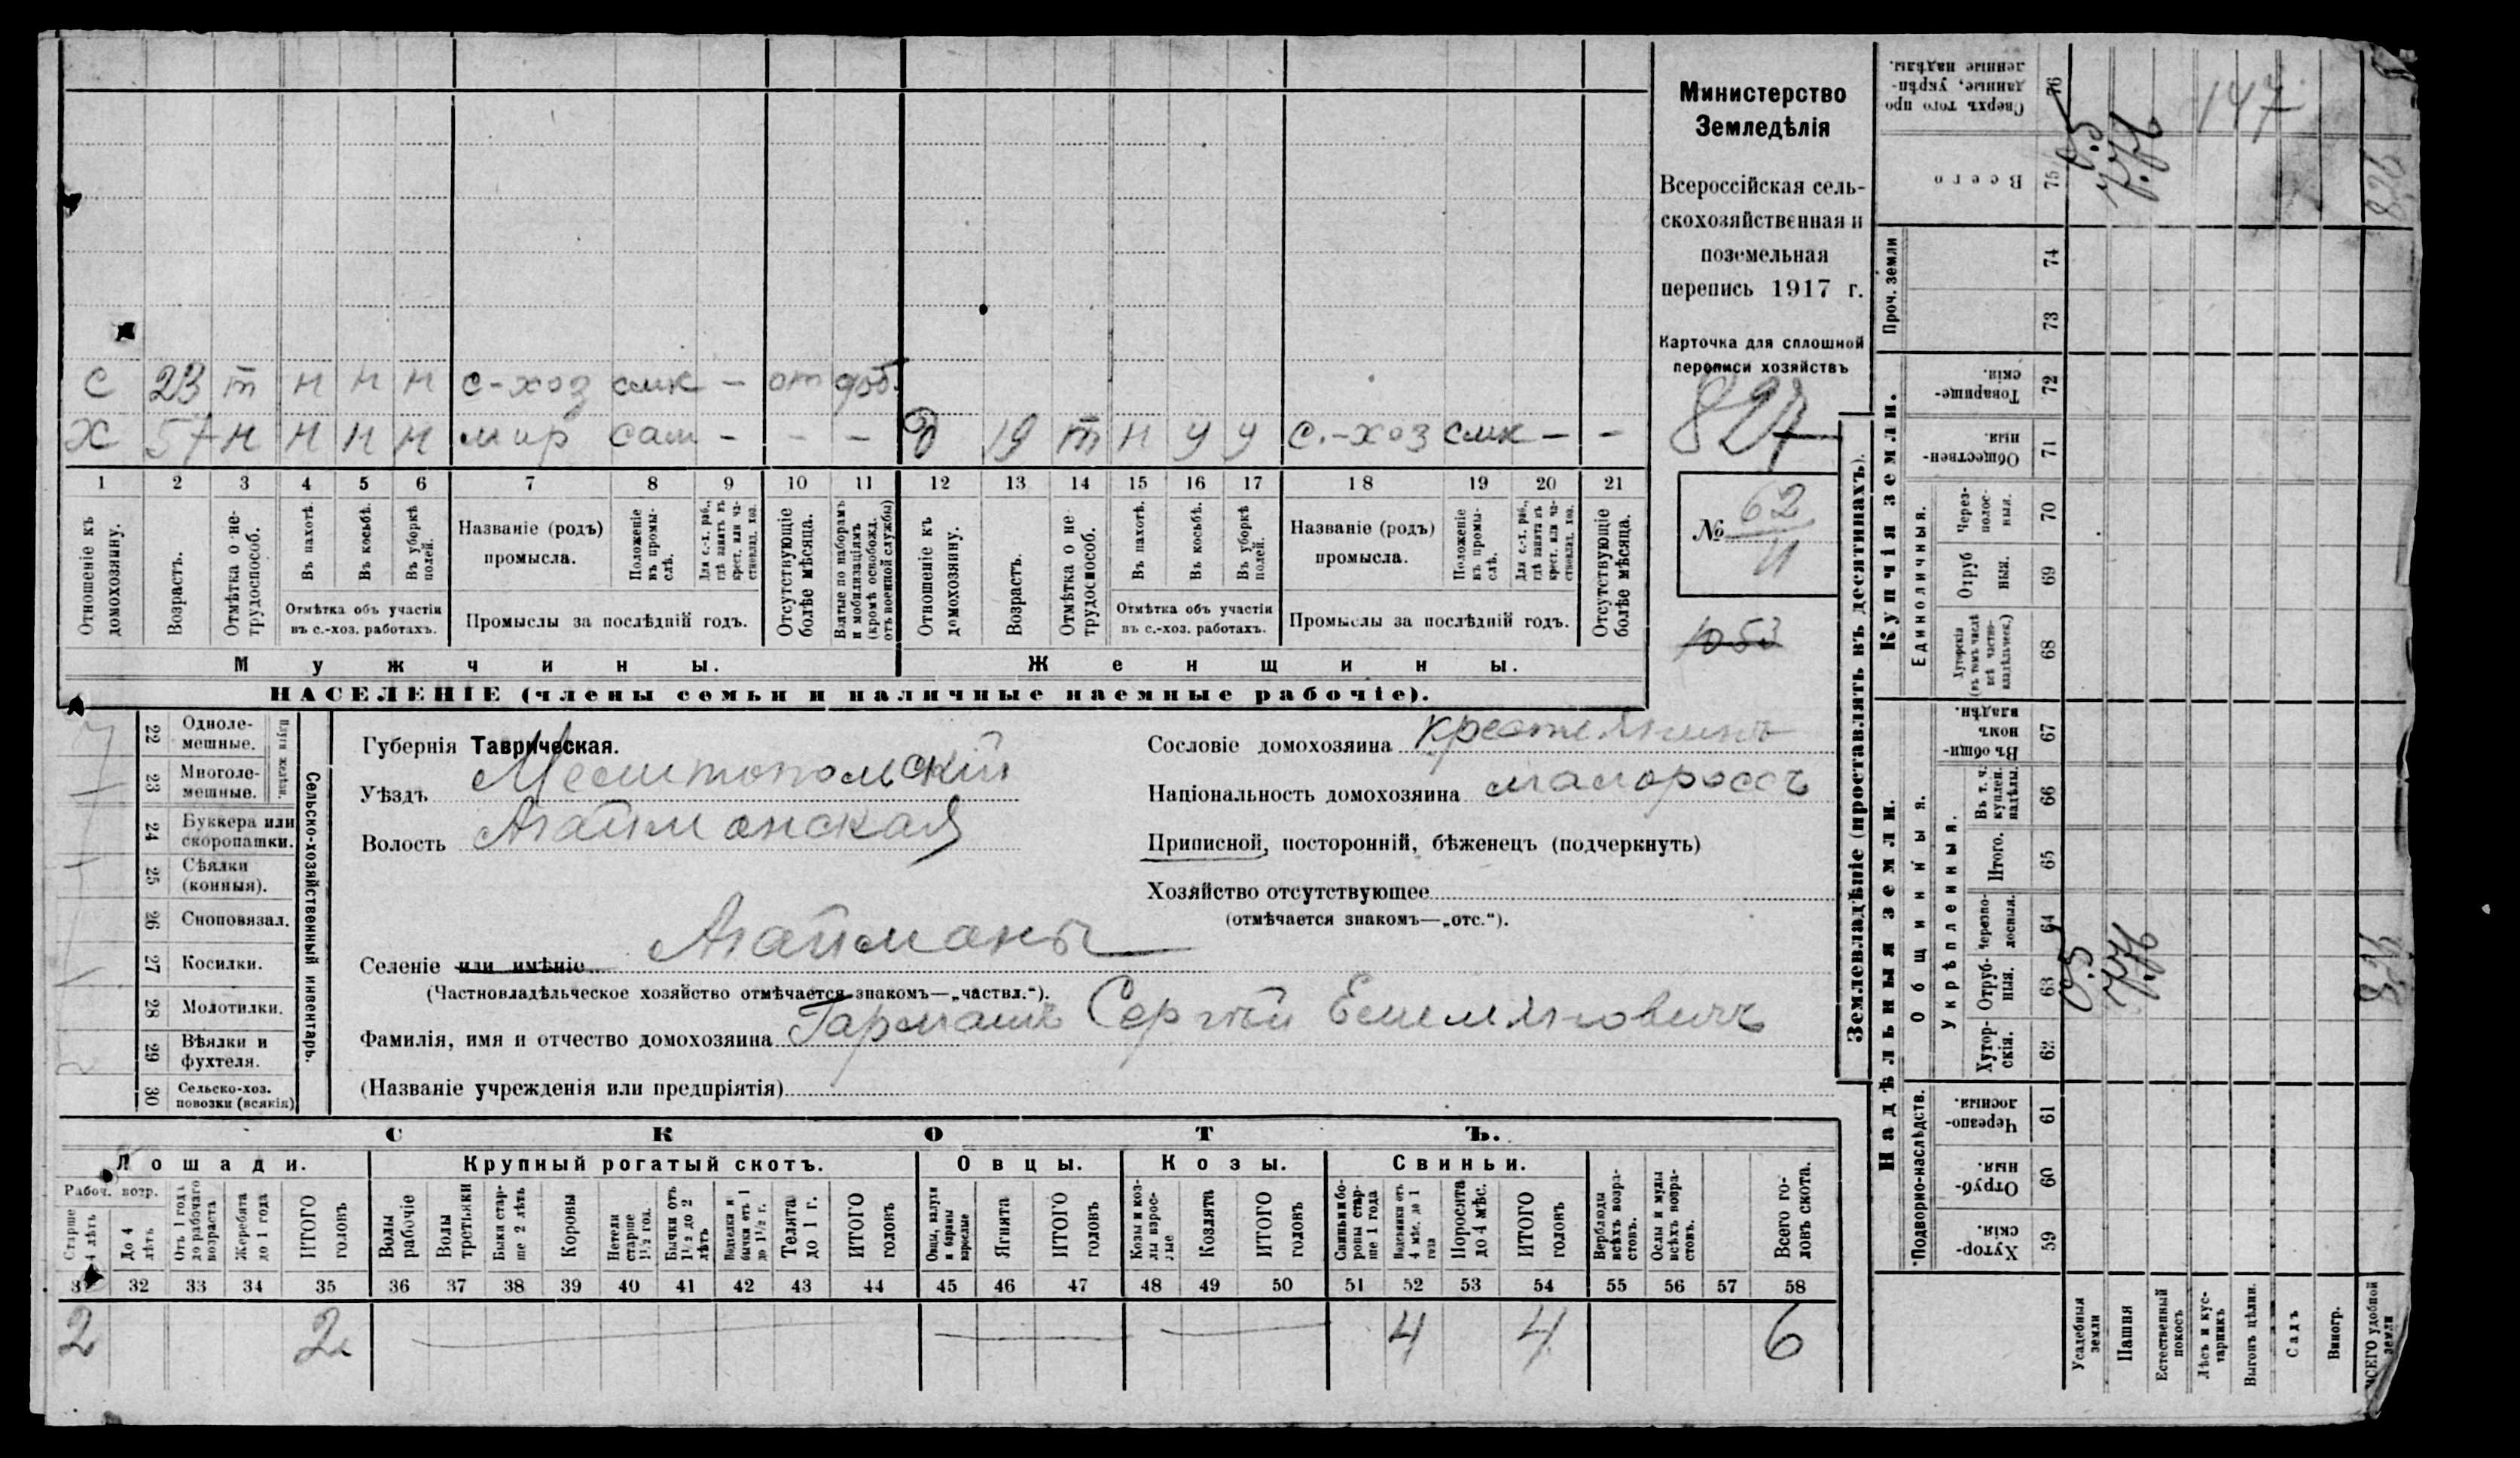 С 23 т н н н с-хоз смк – от доб.
Х 57 н н н н мир сам – – – д 19 т н у у с.-хоз смк – –
1 2 3 4 5 6 7 8 9 10 11 12 13 14 15 16 17 18 19 20 21
Отношеніе къ домохозяину.
Возрастъ.
Отмѣтка о не-трудоспособ.
Въ пахотѣ.
Въ косьбѣ.
Въ уборкѣ полей.
Отмѣтка объ участіи
въ с.-хоз. работахъ.
Названіе (родъ)
промысла.
Положеніе въ промы-слѣ.
Для с.-х. раб., гдѣ занятъ въ крест. или ча-стновлад. хоз.
Промыслы за послѣдній годъ.
Отсутствующіе болѣе мѣсяца.
Взятые по наборамъ и мобилизаціямъ (кромѣ освобожд. отъ военной службы)
Отношеніе къ домохозяину.
Возрастъ.
Отмѣтка о не трудоспособ.
Въ пахотѣ.
Въ косьбѣ.
Въ уборкѣ полей.
Отмѣтка объ участіи
въ с.-хоз. работахъ.
Названіе (родъ)
промысла.
Положеніе въ промы-слѣ.
Для с.-х. раб., гдѣ занятъ въ крест. или ча-стновлад. хоз.
Промыслы за послѣдній годъ.
Отсутствующіе болѣе мѣсяца.
Мужчины.
Женщины.
НАСЕЛЕНІЕ (члены семьи и наличные наемные рабочіе).
Министерство
Земледѣлія
Всероссійская сель-
скохозяйственная и
поземельная
перепись 1917 г.
Карточка для сплошной
переписи хозяйствъ
827
№ 62
11
1053
22 Одноле-мешные.
23 Многоле-мешные.
Плуги желѣзн.
24 Буккера или скоропашки.
25 Сѣялки (конныя).
26 Сноповязал.
27 Косилки.
28 Молотилки.
29 Вѣялки и фухтеля.
30 Сельско-хоз. повозки (всякія)
Сельско-хозяйственный инвентарь.
Губернія Таврическая.
Уѣздъ Мелитопольскій
Волость Агайманская
Селеніе или имѣніе Агайманъ
(Частновладѣльческое хозяйство отмѣчается знакомъ—„частвл.“).
Фамилія, имя и отчество домохозяина Гармашъ Сергѣй Емельяновичъ
(Названіе учрежденія или предпріятія)
Сословіе домохозяина крестьянинъ
Національность домохозяина малороссъ
Приписной, посторонній, бѣженецъ (подчеркнуть)
Хозяйство отсутствующее
(отмѣчается знакомъ—„отс.“).
СКОТЪ.
Лошади. Крупный рогатый скотъ. Овцы. Козы. Свиньи.
Рабоч. возр.
Старше 4 лѣтъ
До 4 лѣтъ
Отъ 1 года до рабочаго возраста
Жеребята до 1 года
ИТОГО головъ
Волы рабочіе
Волы третьяки
Быки стар-ше 2 лѣтъ
Коровы
Нетели старше 1½ год.
Бычки отъ 1½ до 2 лѣтъ
Телята до 1 г.
ИТОГО головъ
Овцы, валухи и бараны взрослые
Ягнята
ИТОГО головъ
Козы и коз-лы взрос-лые
Козлята
ИТОГО головъ
Свиньи и бо-ровы стар-ше 1 года
Поросята до 4 мѣс.
ИТОГО головъ
Верблюды всѣхъ возра-стовъ.
Ослы и мулы всѣхъ возра-стовъ.
Всего го-ловъ скота.
32 33 34 35 36 37 38 39 40 41 42 43 44 45 46 47 48 49 50 51 52 53 54 55 56 57 58
2 2 4 4 6
Землевладѣніе (проставлять въ десятинахъ).
Купчія земли.
Надѣльныя земли.
Сверхъ того про данные, укрѣп-ленные надѣлы.
76
Всего
75
Проч. земли
74
73
Товарище-скія.
72
Обществен-ныя.
71
Единоличныя.
Через-полос-ныя.
70
Отруб ныя.
69
Хуторскія (въ томъ числѣ всѣ частно-владѣльческ.)
68
Общинныя.
Въ общин номъ владѣн.
67
Укрѣпленныя.
Въ т. ч. куплен. надѣлы.
66
Итого.
65
Черезпо-лосныя.
64
Отруб-ныя.
63
Хутор-скія.
62
Подворно-наслѣдств.
Черезпо-лосныя.
61
Отруб-ныя.
60
Хутор-скія.
59
Усадебныя земли
Пашня
Естественный покосъ
Лѣсъ и кус-тарникъ
Выгонъ цѣлин.
Садъ
Виногр.
ВСЕГО удобной земли
147
0.5
0.5